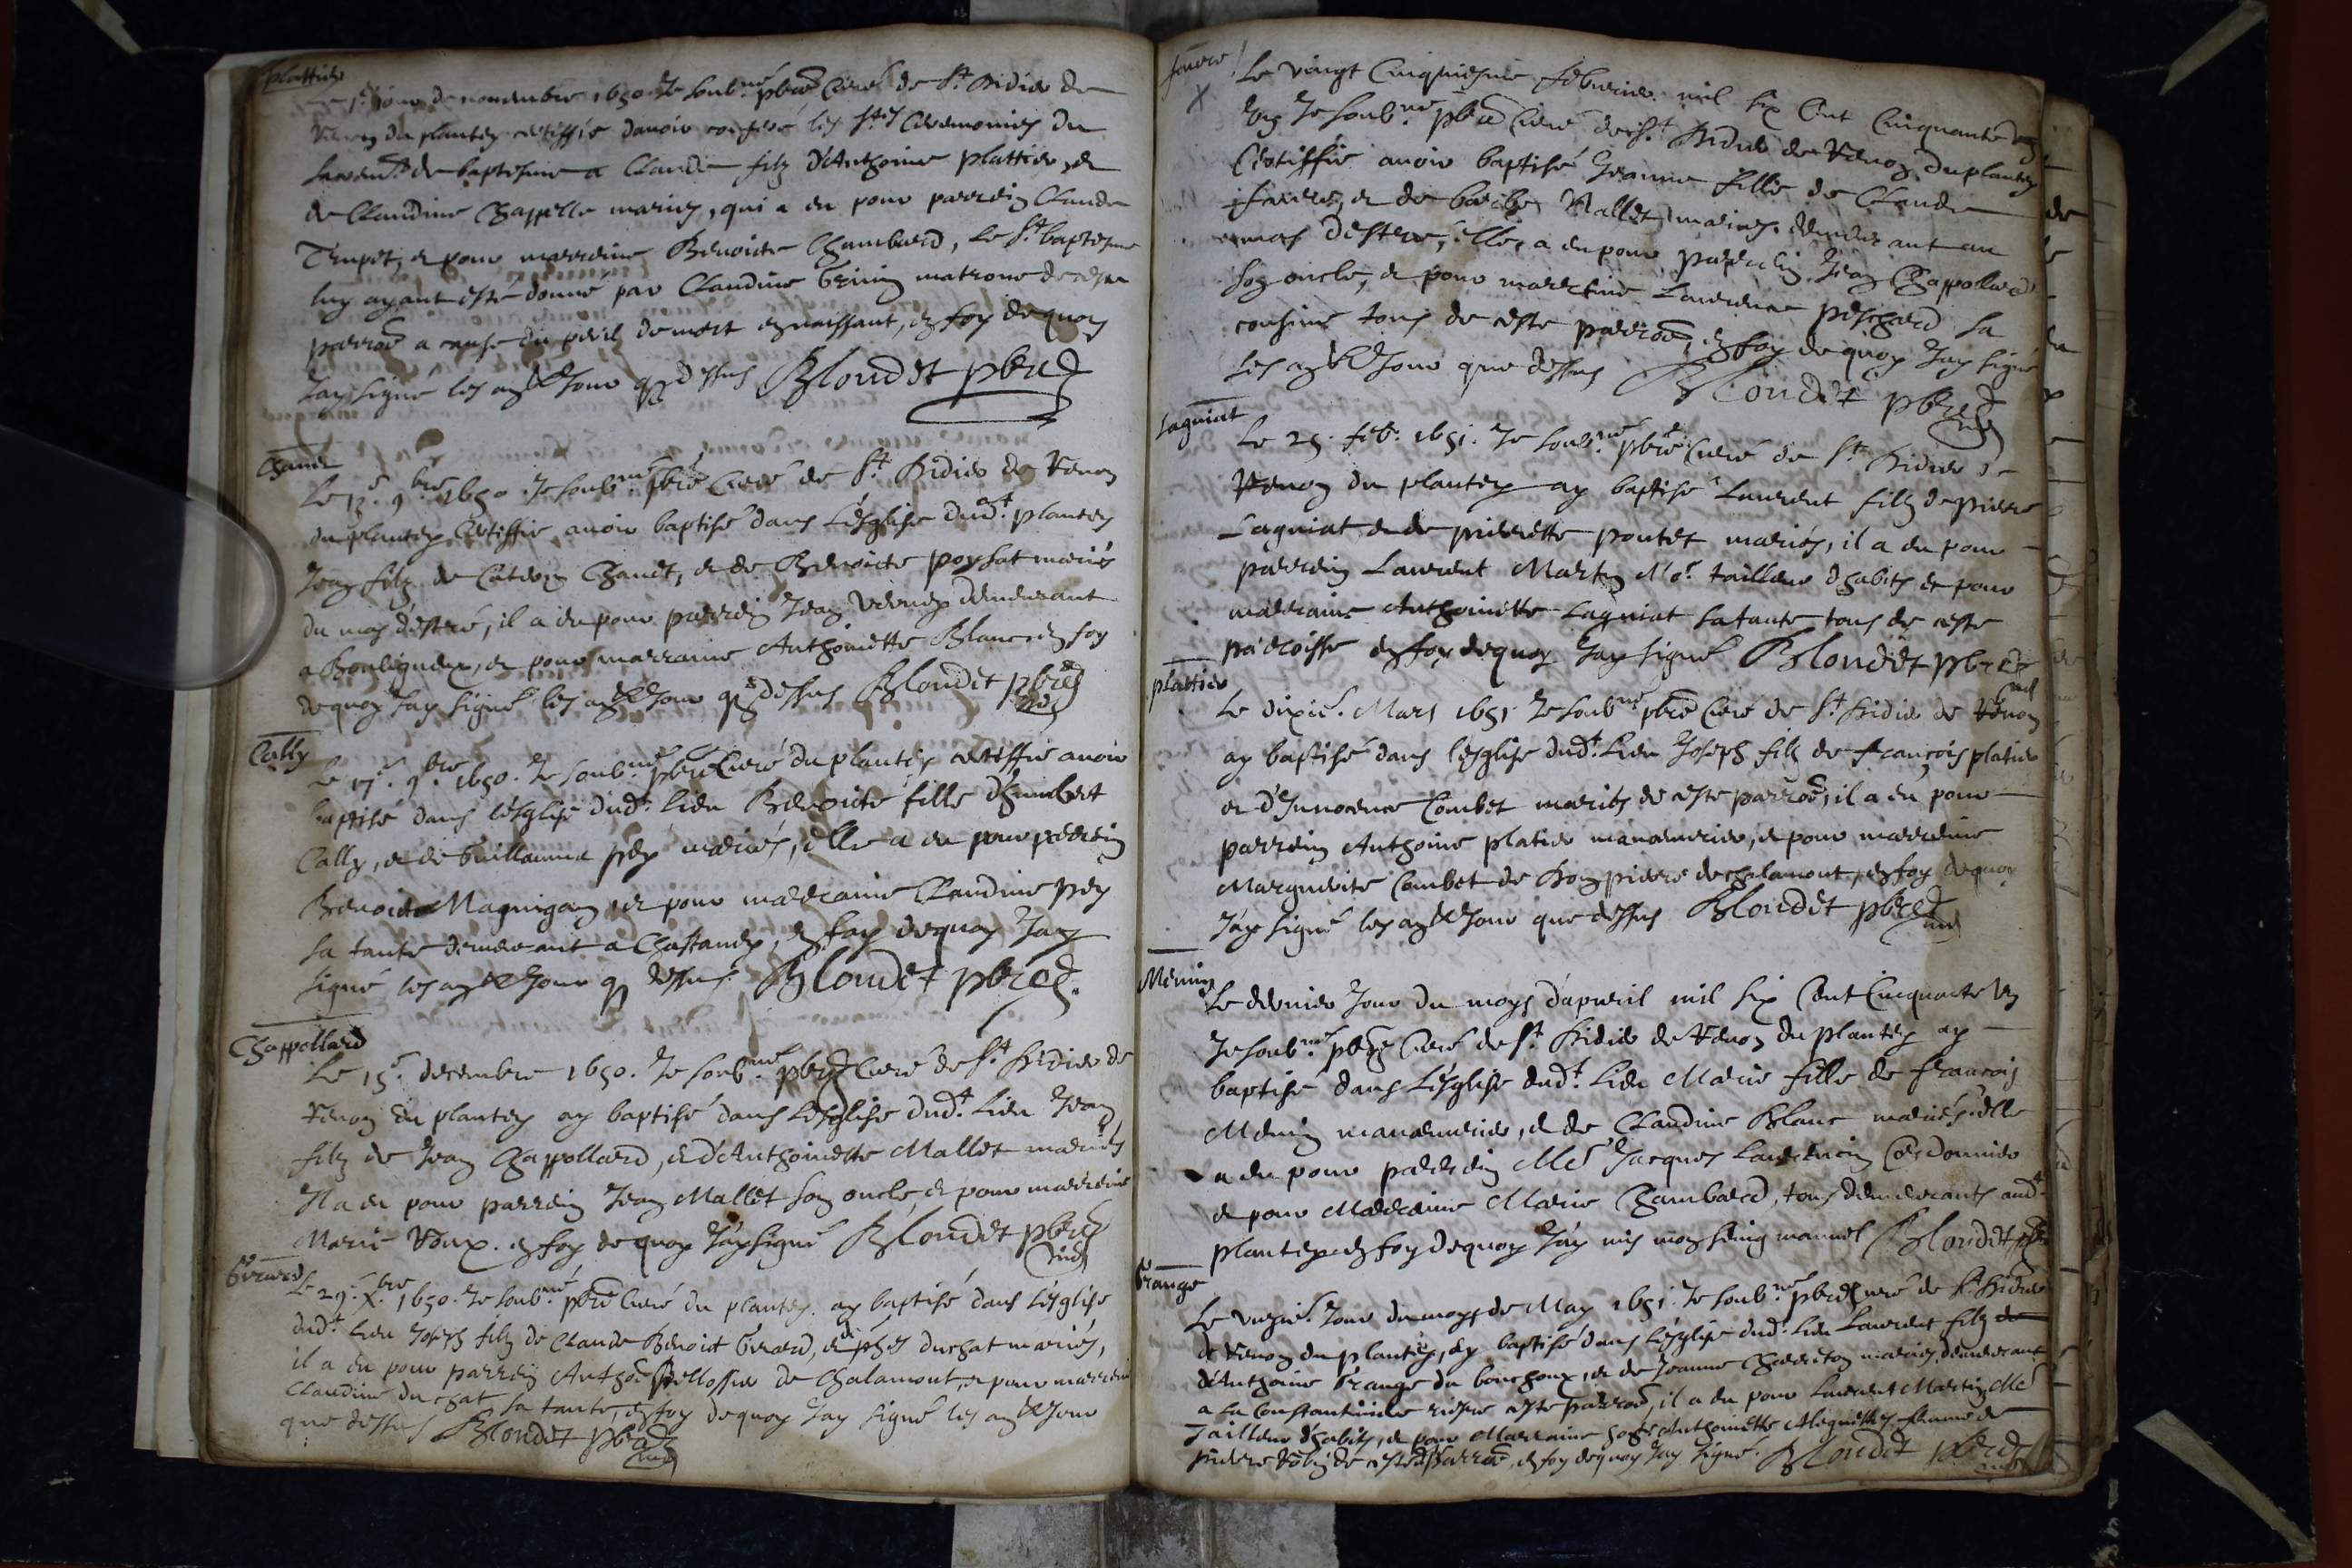 plattier
Le 1er jour de novembre 1650 Je soub.né pbre Curé de St Didier de
Renon du plantey certiffie d'avoir conferé les Stes Ceremonies du
sacrem.t de baptesme a Claude filz d'Anthoine plattier, et
de Claudine Chappelle mariés, qui a eu pour parrein Claude
Trupet, et pour marreine Benoicte Chambard, le St baptesme
luy ayant esté donné par Claudine matrone de ceste
parroe a cause du peril de mort en naissant, en foy dequoy
Jay signé les an et Jour q dessus Blondet pbre
Chanet
Le 13e 9bre 1650 Je soub.né pbre Curé de St Didier de Renon
du plantey Certiffie avoir baptisé dans L'esglise dud.t plantey
Jean filz de Chanet, et de Benoicte poysat mariés
du mas d'estre, il a eu pour parrein Jean demeurant
a Bouligneux, et pour marraine Anthoinette Blanc en foy
dequoy Jay signé les an et Jour q dessus Blondet pbre
Cally
Le 17e 9bre 1650. Je soub.né pbre Curé du plantey certiffie avoir
baptisé dans lesglise dud.t lieu Benoicte fille d'humbert
Cally, et de Guillauma pey mariés, elle a eu pour parrein
Benoict Magnigan, et pour marraine Claudine pey
sa tante demeurant a Chastaney, en foy dequoy Jay
signé les an et Jour q dessus. Blondet pbre
Chappollard
Le 15e decembre 1650. Je soub.né pbre Curé de St Didier de
Renon du plantey ay baptisé dans Lesglise dud.t Lieu Jean
filz de Jean Chappollard, et d'Anthoinette Mallet mariés
Il a eu pour parrein Jean Mallet son oncle, et pour marreine
Marie Roux. en foy de quoy Jay signé Blondet pbre
Girard
Le 29e Xbre 1650. Je soub.né pbre Curé du plantey. ay baptisé dans L'esglise
dud.t Lieu Joseph filz de Claude Benoict Girard, et duchat mariés,
il a eu pour parrein Antho de Chalamont, et pour marreine
Claudine du chat sa tante, en foy dequoy Jay signé les an et Jour
que dessus Blondet pbre
favere
X
Le vingt Cinquiesme febvrier mil six Cent Cinquante et
ung Je soub.né pbre Curé de St Didier de Renon du plantey
Certiffie avoir baptisé Jeanne fille de Claude
favre, et de Mallet mariés demeurant au
mas d'estre, elle a eu pour parrein Jean Chappollard
son oncle, et pour marreine Laurence peschard sa
cousine tous de ceste parroe, en foy dequoy Jay signé
Les an et Jour que dessus Blondet pbre
Lagniat
Le 25. feb: 1651. Je soub.né pbre Curé de St Didier de
Renon du plantey ay baptisé Laurent filz de pierre
Lagniat et de pierrette poutet mariés, il a eu pour
parrein Laurent Martin tailleur d'habits et pour
marraine Anthoinette Lagniat sa tante tous de ceste
parroisse en foy dequoy Jay signé Blondet pbre
plattier
Le dixie. Mars 1651 Je soub.né pbre Curé de St Didier de Renon
ay baptisé dans lesglise dud.t Lieu Joseph filz de françois platier
et d'Innocence Combet mariés de ceste parroe, il a eu pour
parrein Anthoine platier manouvrier, et pour marreine
Marguerite Combet de dompierre de chalamont, en foy dequoy
Jay signé les an et Jour que dessus Blondet pbre
Menin
Le dernier Jour du moys d'apvril mil six Cent Cinquante un
Je soub.né pbre Curé de St Didier de Renon du plantey ay
baptisé dans L'esglise dud.t Lieu Marie fille de françois
Menin manouvrier, et de Claudine Blanc mariés, elle
a eu pour parrein Me Jacques Laurencin Cordonnier
et pour Marraine Marie Chambard, tous demeurants aud.t
plantey en foy dequoy Jay mis mon seing manuel Blondet pbre
Grange
Le unzie. Jour du moys de May 1651. Je soub.né pbre Curé de St Didier
de Renon du plantey, ay baptisé dans L'esglise dud.t Lieu Laurent filz de
d'Anthoine Grange du bouchoux, et de Jeanne Charreton mariés demeurant
a la ceste parroe, il a eu pour Laurent Martin Me
Tailleur d'habits, et pour Marraine Anthoinette femme de
pierre de ceste parroe, en foy dequoy Jay signé. Blondet pbre